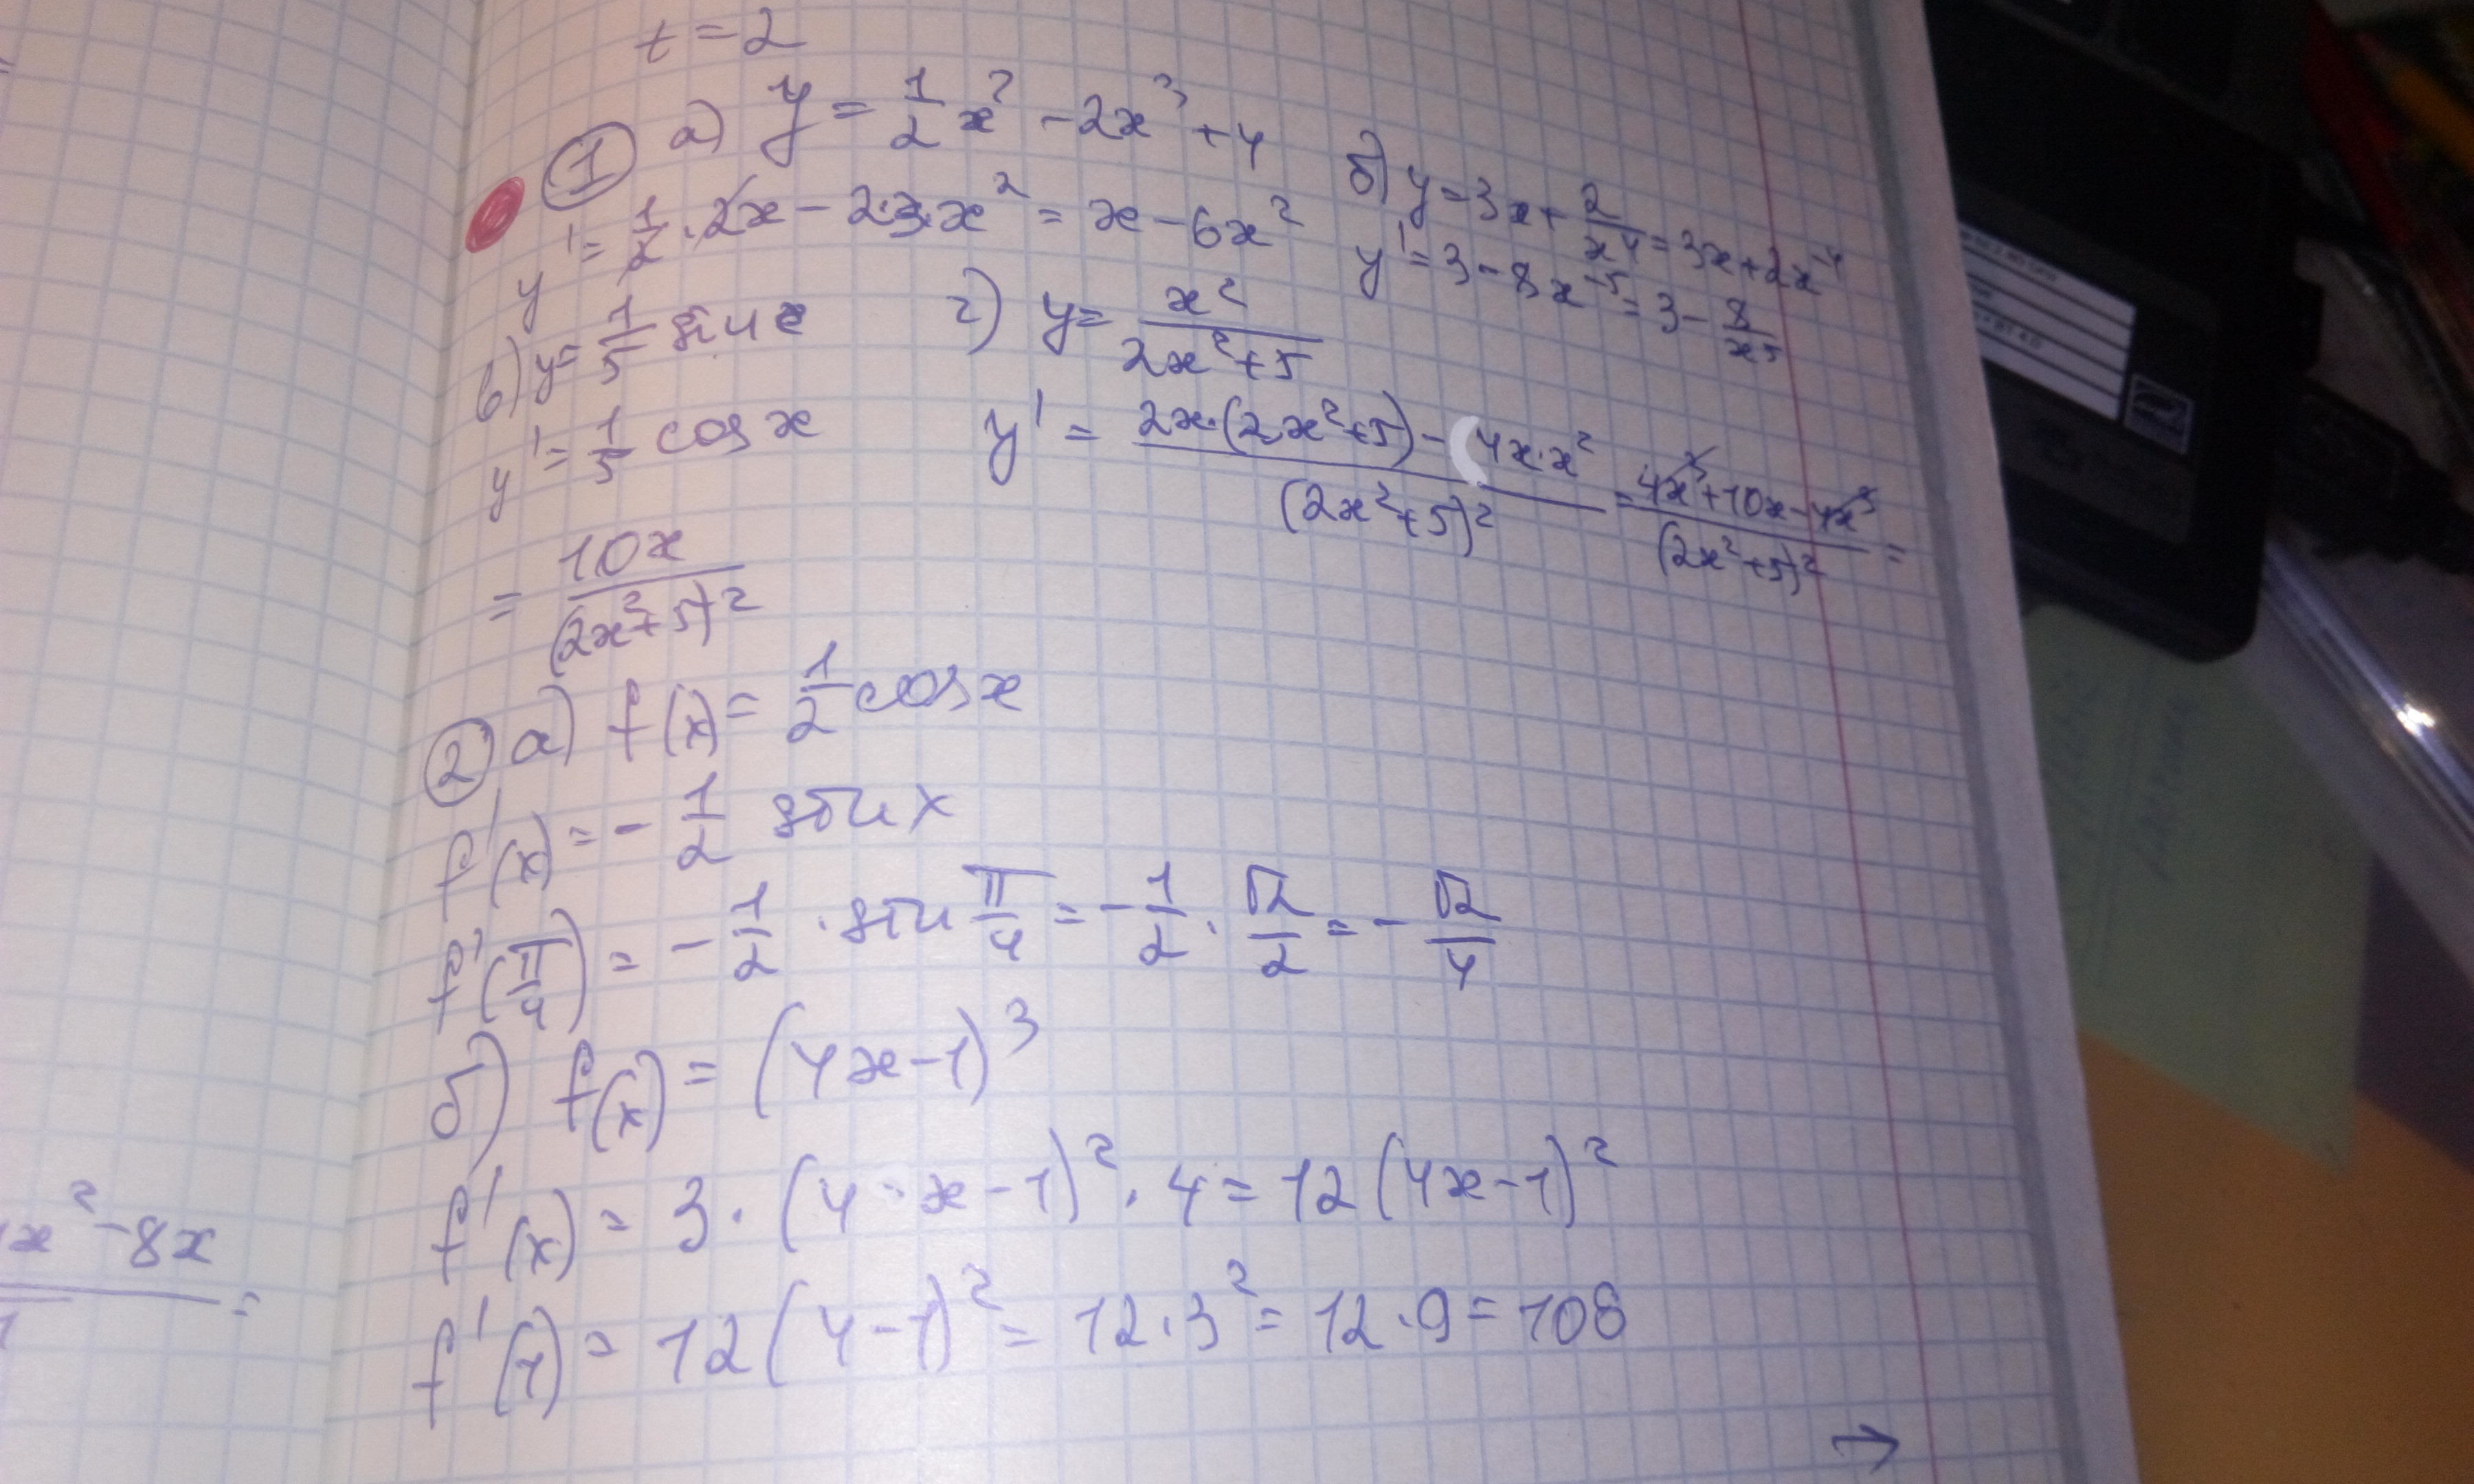 t = 2
① а) y = 1/2 x² - 2x³ + 4
y' = 1/2 · 2x - 2·3·x² = x - 6x²
б) y = 3x + 2/x⁴ = 3x + 2x⁻⁴
y' = 3 - 8x⁻⁵ = 3 - 8/x⁵
в) y = 1/5 sin x
y' = 1/5 cos x
г) y = x²/(2x² + 5)
y' = (2x·(2x² + 5) - 4x·x²)/(2x² + 5)² = (4x³ + 10x - 4x³)/(2x² + 5)² =
= 10x/(2x² + 5)²
② а) f(x) = 1/2 cos x
f'(x) = - 1/2 sin x
f'(π/4) = - 1/2 · sin π/4 = - 1/2 · √2/2 = - √2/4
б) f(x) = (4x - 1)³
f'(x) = 3 · (4 · x - 1)² · 4 = 12 (4x - 1)²
f'(1) = 12 (4 - 1)² = 12 · 3² = 12 · 9 = 108
→
x² - 8x
=